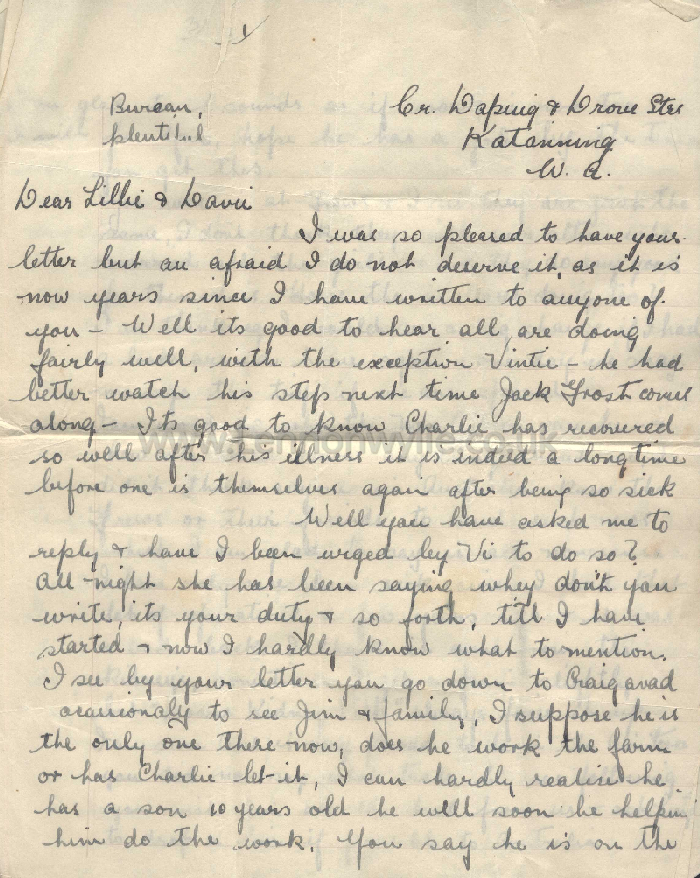 Bureau,
plentiful
Cr. Daping & Drove Sts
Katanning
W. A.
Dear Lillie & Davie
I was so pleased to have your
letter but am afraid I do not deserve it, as it is
now years since I have written to anyone of
you - Well its good to hear all are doing
fairly well, with the exception Vintie - he had
better watch his step next time Jack Frost comes
along - Its good to know Charlie has recovered
so well after his illness it is indeed a long time
before one is themselves again after being so sick
Well you have asked me to
reply & have I been urged by Vi to do so?
All night she has been saying whey don't you
write, its your duty & so forth, till I have
started & now I hardly know what to mention.
I see by your letter you go down to Craigavad
occasionaly to see Jim & family, I suppose he is
the only one there now, does he work the farm
or has Charlie let it, I can hardly realise he
has a son 10 years old he will soon be helping
him do the work. You say he is on the
www.

.co.uk